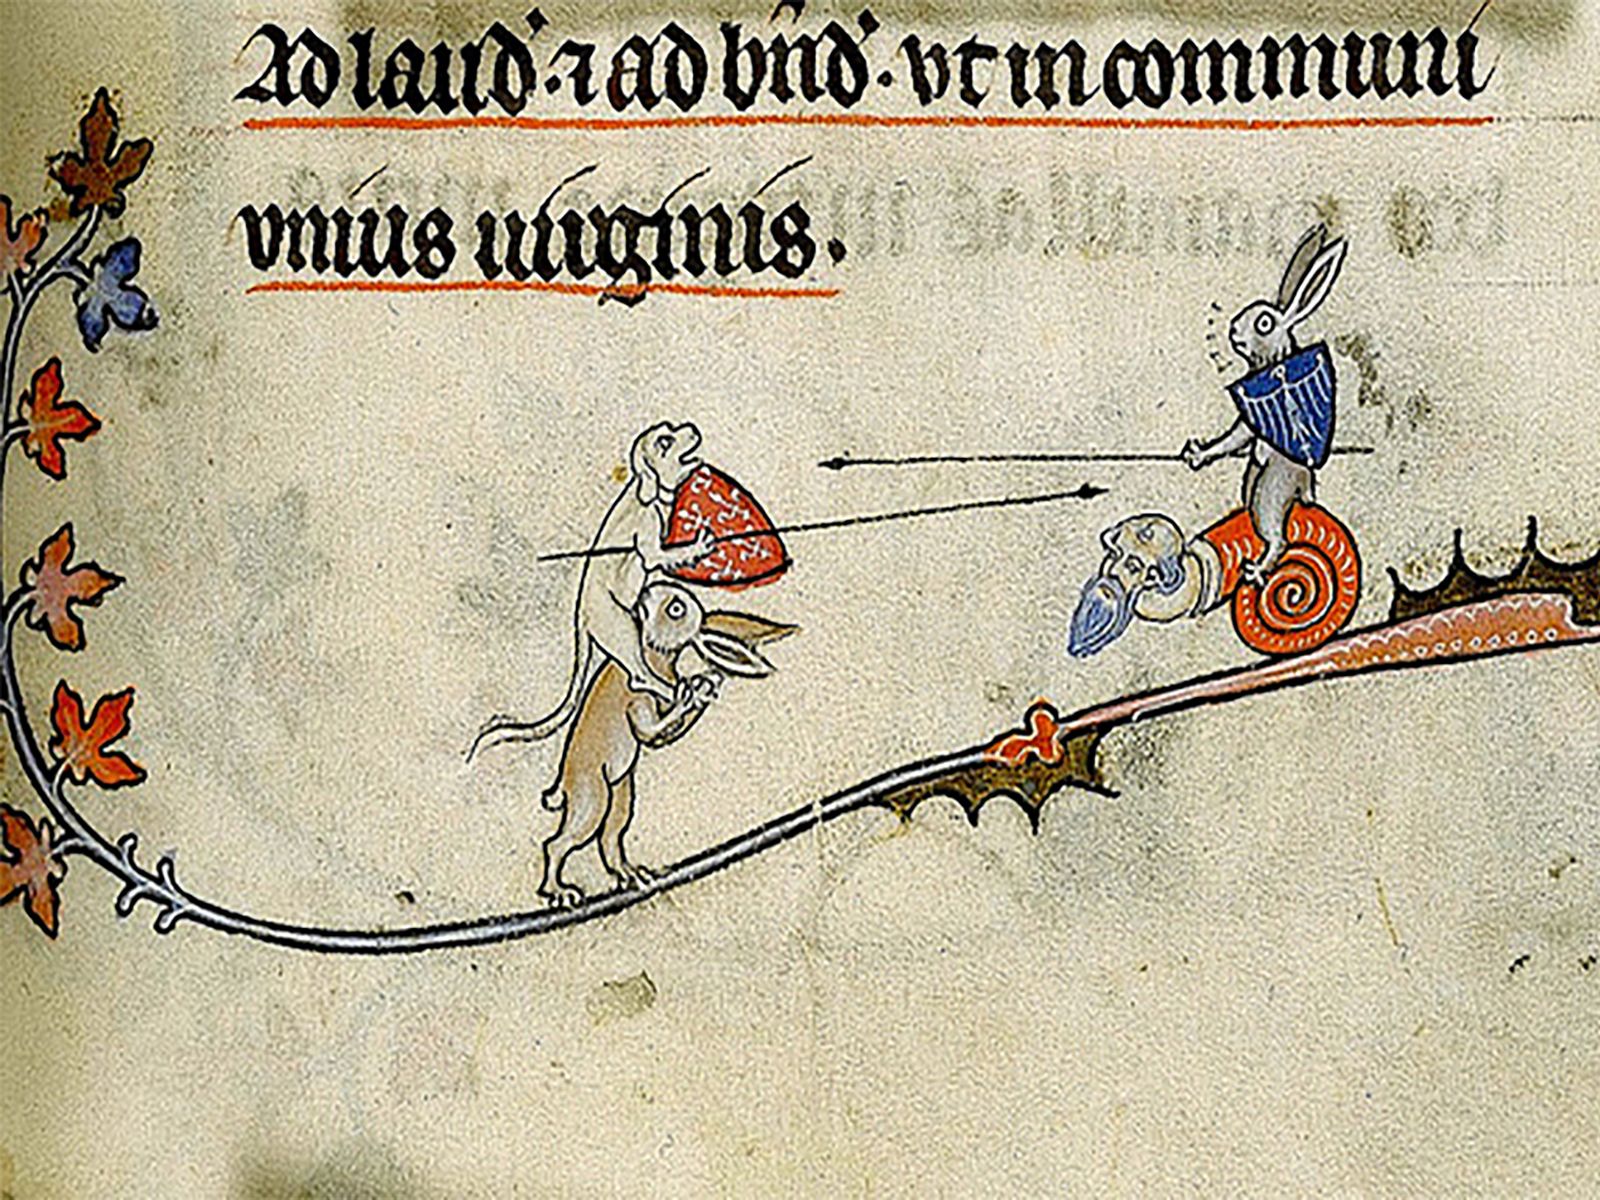 Ad laud᷎. ⁊ ad bn̄d᷎. vt in communi
vnius uirginis.